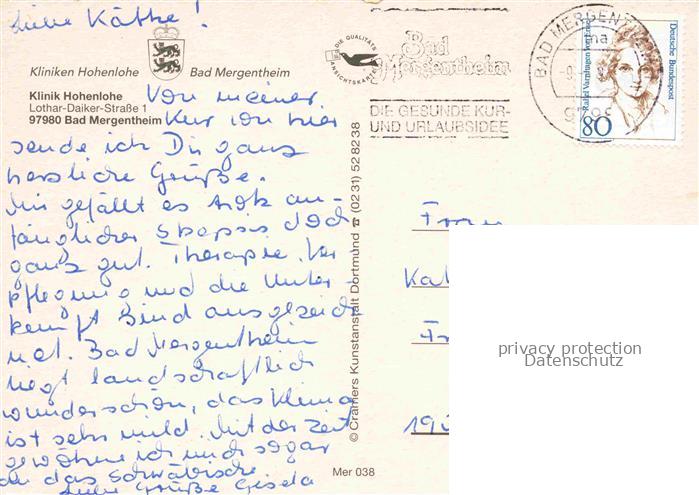 Liebe Käthe!
Kliniken Hohenlohe Bad Mergentheim
Klinik Hohenlohe
Lothar-Daiker-Straße 1
97980 Bad Mergentheim
Von meiner
Kur von hier
sende ich Dir ganz
herzliche Grüße.
Mir gefällt es trotz an-
fänglicher Skepsis doch
ganz gut. Therapie, Ver
pflegung und die Unter-
kunft sind ausgezeich
net. Bad Mergentheim
liegt landschaftlich
wunderschön, das Klima
ist sehr mild. Mit der Zeit
gewöhne ich mich sogar
an das Schwäbische
Liebe Grüße Gisela
DIE QUALITÄTS
ANSICHTSKARTE
Bad
Mergentheim
DIE GESUNDE KUR-
UND URLAUBSIDEE
BAD MERGENTHEIM
ma
Deutsche Bundespost
Rahel Varnhagen von Ense
80
© Cramers Kunstanstalt Dortmund ☎ (02 31) 52 82 38
Frau
privacy protection
Datenschutz
Mer 038